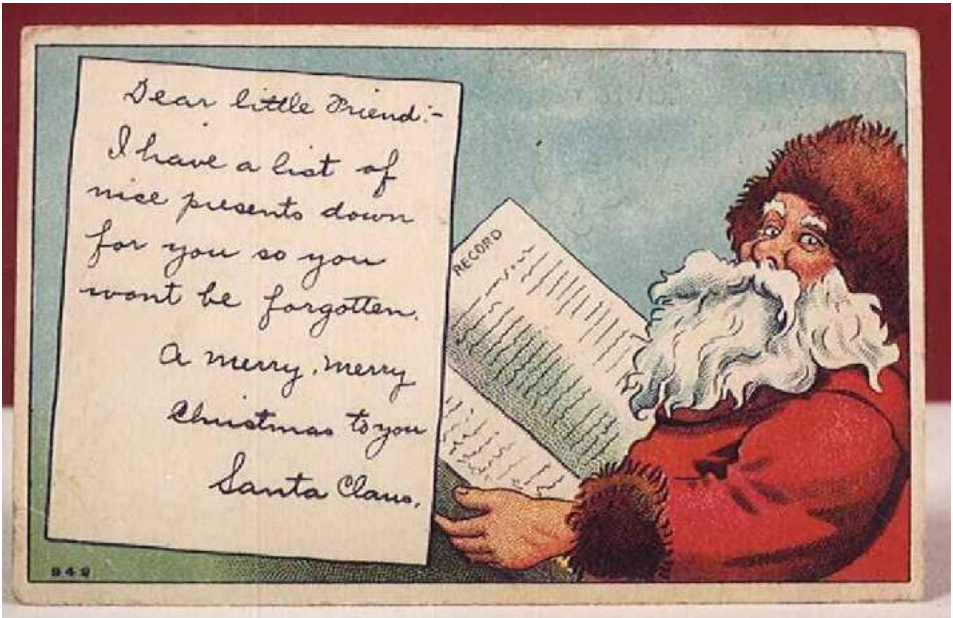 Dear little Friend:-
I have a list of
nice presents down
for you so you
wont be forgotten.
A merry, merry
Christmas to you
Santa Claus.
RECORD
949